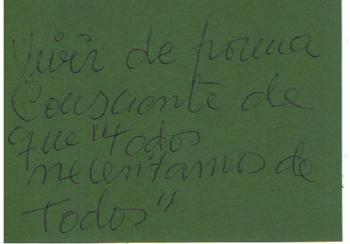 Vivir de forma
Consciente de
que "todos
necesitamos de
Todos"